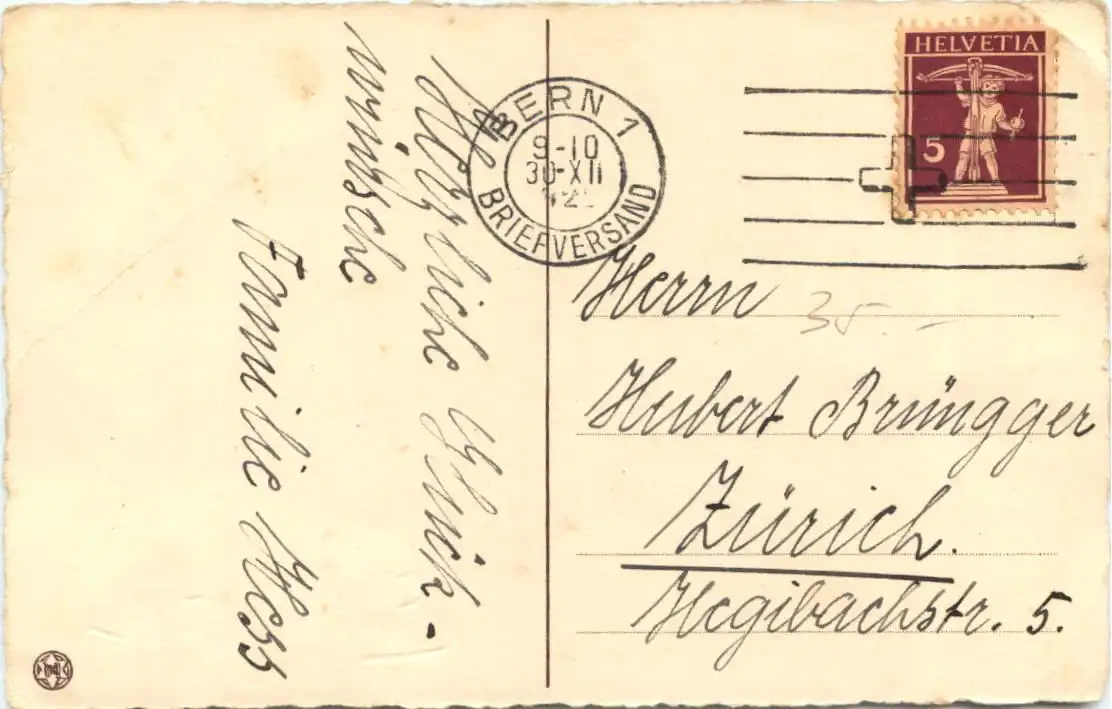 Herzliche Glück-
wünsche
Familie Hess
BERN 1
9-10
30-XII
BRIEFVERSAND
HELVETIA
5
Herrn
35.-
Hubert Brüngger
Zürich.
Hegibachstr. 5.